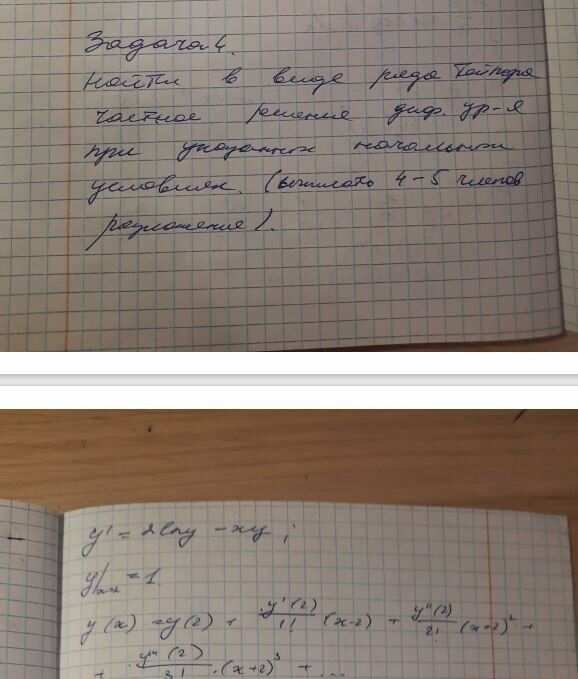 Задача 4.
Найти в виде ряда Тейлора
частное решение диф. ур-я
при указанных начальных
условиях. (выписать 4-5 членов
разложения).
y' = 2lny - xy ;
y|x=2 = 1
y(x) = y(2) + y'(2)/1! (x-2) + y''(2)/2! (x+2)² +
+ y'''(2)/3! · (x+2)³ + ...